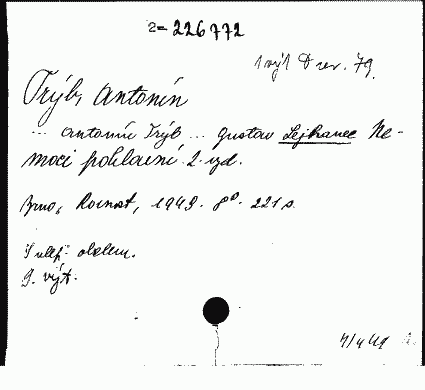 2=226772
1 výt D rev. 79.
Trýb, Antonín
... Antonín Trýb ... Gustav Lejhanec Ne-
moci pohlavní. 2. vyd.
Brno, Rovnost, 1949. 8°. 221 s.
oblem.
9. výt.